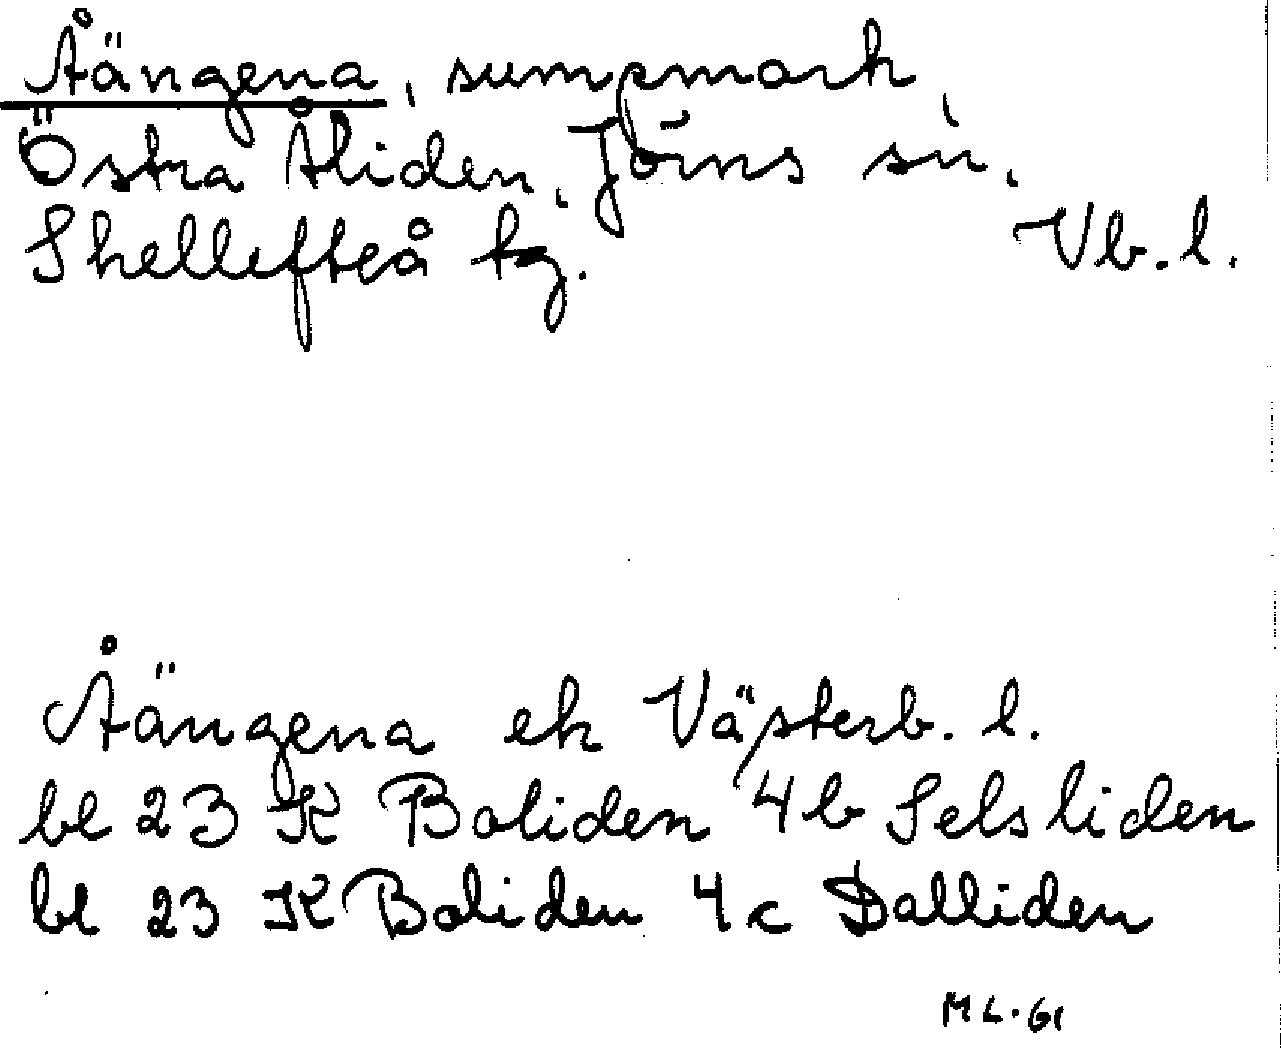 Åängena, sumpmark,
Östra Åliden, Jörns sn,
Skellefteå tg. Vb. l.
Åängena ek Västerb. l.
bl 23 K Boliden 4b Selsliden
bl 23 K Boliden 4c Dalliden
ML. 61